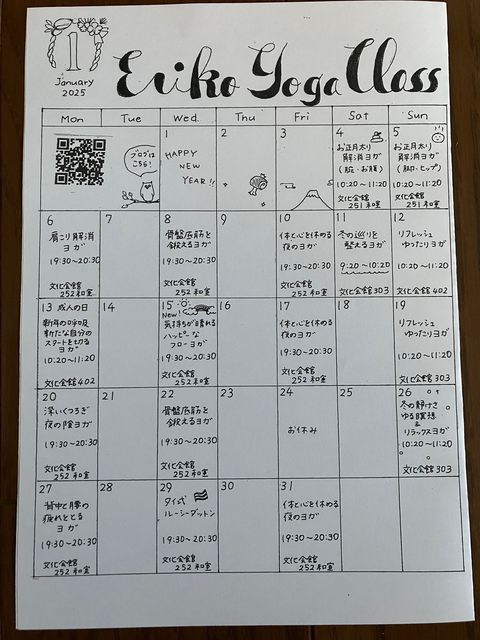 1
January
2025
Eriko Yoga Class
Mon Tue Wed. Thu Fri Sat Sun
ブログは
こちら!
1
HAPPY
NEW
YEAR!!
2
3
4
お正月太り
解消ヨガ
(脚・お腹)
10:20〜11:20
文化会館
251和室
5
お正月太り
解消ヨガ
(脚・ヒップ)
10:20〜11:20
文化会館
251和室
6
肩こり解消
ヨガ
19:30〜20:30
文化会館
252和室
7
8
骨盤底筋を
鍛えるヨガ
19:30〜20:30
文化会館
252和室
9
10
体と心を休める
夜のヨガ
19:30〜20:30
文化会館
252和室
11
冬の巡りを
整えるヨガ
9:20〜10:20
文化会館303
12
リフレッシュ
ゆったりヨガ
10:20〜11:20
文化会館402
13 成人の日
新年の呼吸
新たな自分の
スタートをきる
ヨガ
10:20〜11:20
文化会館402
14
15
New!
気持ちが晴れる
ハッピーな
フローヨガ
文化会館
252和室
16
17
体と心を休める
夜のヨガ
19:30〜20:30
文化会館
252和室
18
19
リフレッシュ
ゆったりヨガ
10:20〜11:20
文化会館303
20
深いくつろぎ
夜の陰ヨガ
19:30〜20:30
文化会館
252和室
21
22
骨盤底筋を
鍛えるヨガ
19:30〜20:30
文化会館
252和室
23
24
お休み
25
26
冬の静けさ
ゆる瞑想
&
リラックスヨガ
10:20〜11:20
文化会館303
27
背中と腰の
疲れをとる
ヨガ
19:30〜20:30
文化会館
252和室
28
29
タイ式
ルーシーダットン
19:30〜20:30
文化会館
252和室
30
31
体と心を休める
夜のヨガ
19:30〜20:30
文化会館
252和室